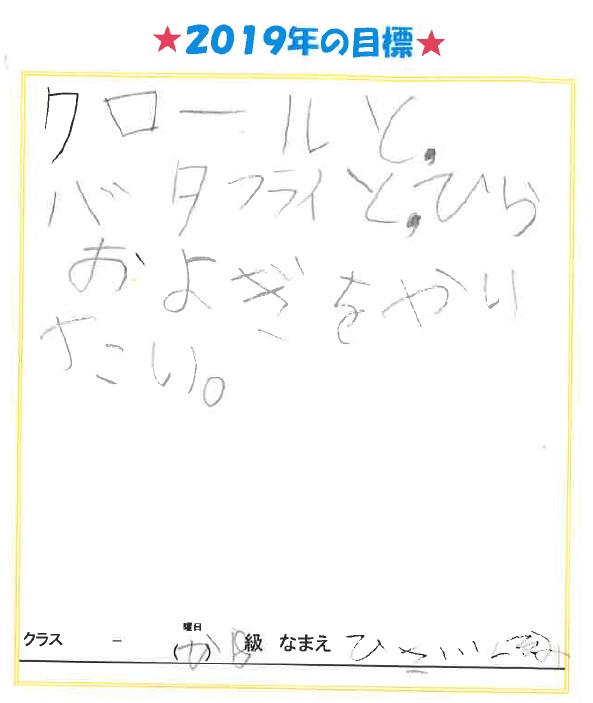 ★2019年の目標★
クロールと,
バタフライと,ひら
およぎをやり
たい。
クラス － 曜日 (か) 8級 なまえ